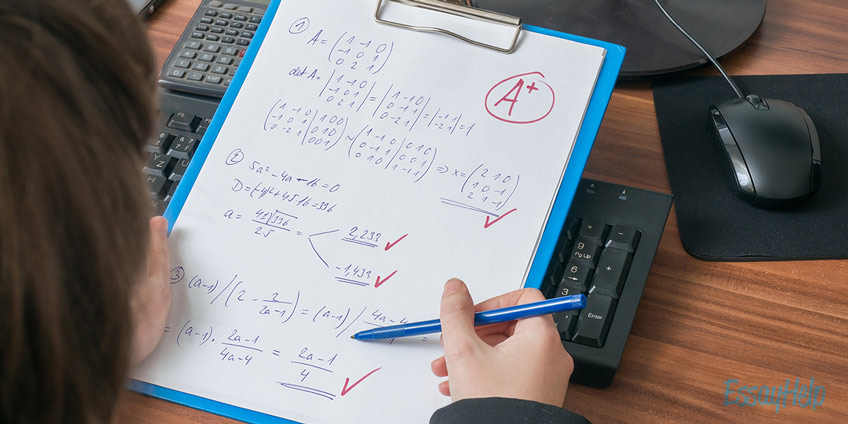 ①
A = (1 -1 0
-1 0 1
0 2 1)
A+
det A = |1 -1 0
-1 0 1
0 2 1| = |1 -1 0
0 -1 1
0 -2 1| = |-1 1
-2 1| = 1
(1 -1 0 | 1 0 0
-1 0 1 | 0 1 0
0 -2 1 | 0 0 1) ~ (1 -1 0 | 0 1 0
0 -1 1 | 0 0 1
0 1 0 | 1 -1 1) => x = (2 1 0
1 0 -1
2 1 -1)
②
5a² - 4a - 16 = 0
D = (-4)² + 4 5 16 = 336
a = 4±√336 / 2 5 = 2,233
-1,433
③
(a-1) / (2 - 2/2a-1) = (a-1) / 4a-4
= (a-1) · 2a-1/4a-4 = 2a-1/4
9
PgUp
6
3
+
-
Enter
EssayHelp